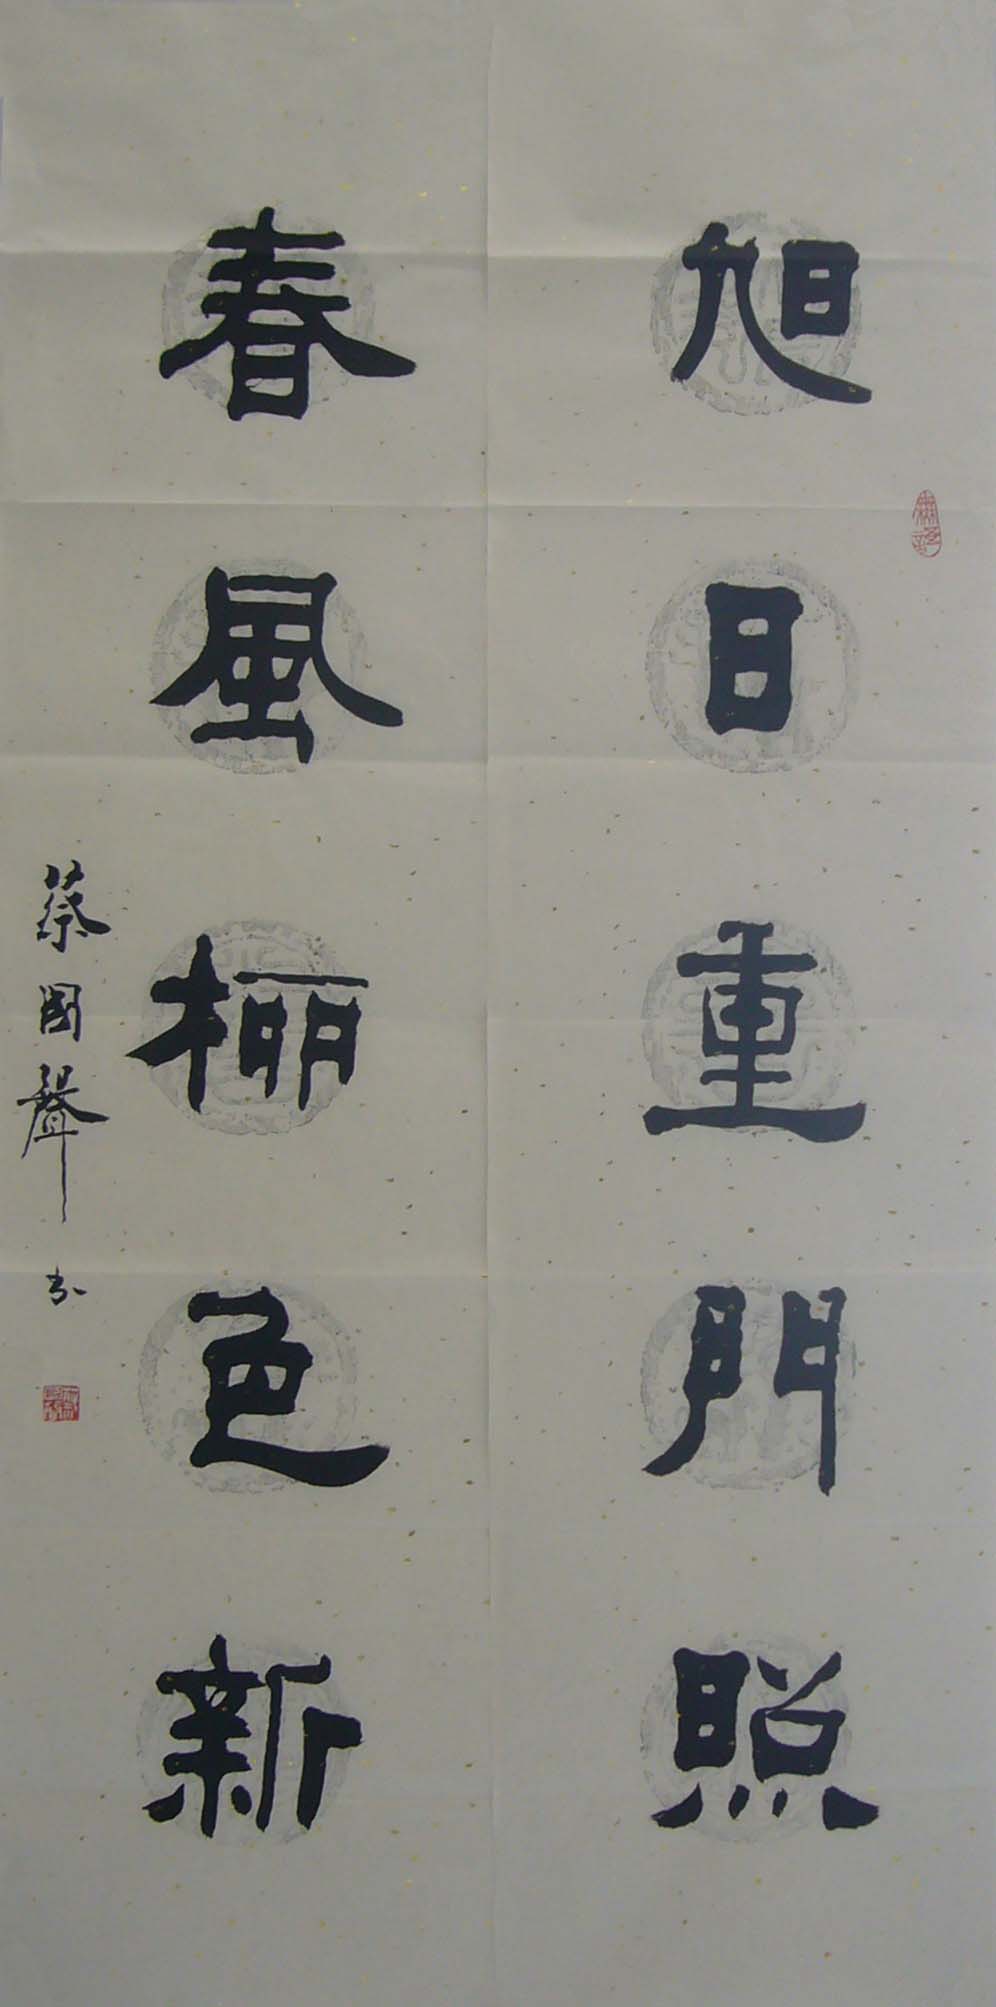 旭日重門照
春風柳色新
蔡國聲书